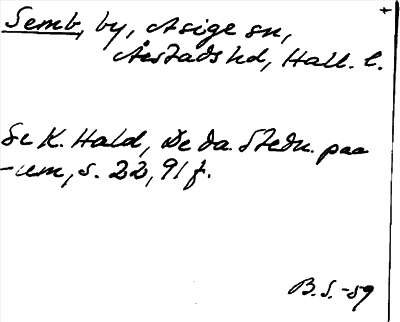 Semb, by, Asige sn,
Årstads hd, Hall. l.
Se K. Hald, De da. Stedn. paa
-um, s. 22, 91 f.
B.S. -59